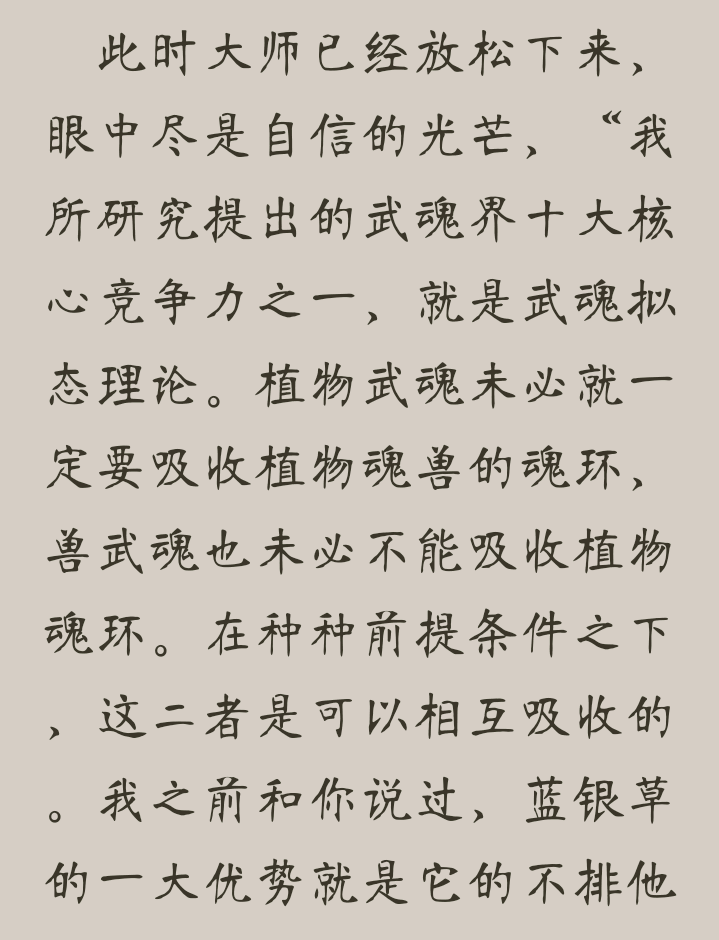 此时大师已经放松下来，
眼中尽是自信的光芒，“我
所研究提出的武魂界十大核
心竞争力之一，就是武魂拟
态理论。植物武魂未必就一
定要吸收植物魂兽的魂环，
兽武魂也未必不能吸收植物
魂环。在种种前提条件之下
，这二者是可以相互吸收的
。我之前和你说过，蓝银草
的一大优势就是它的不排他